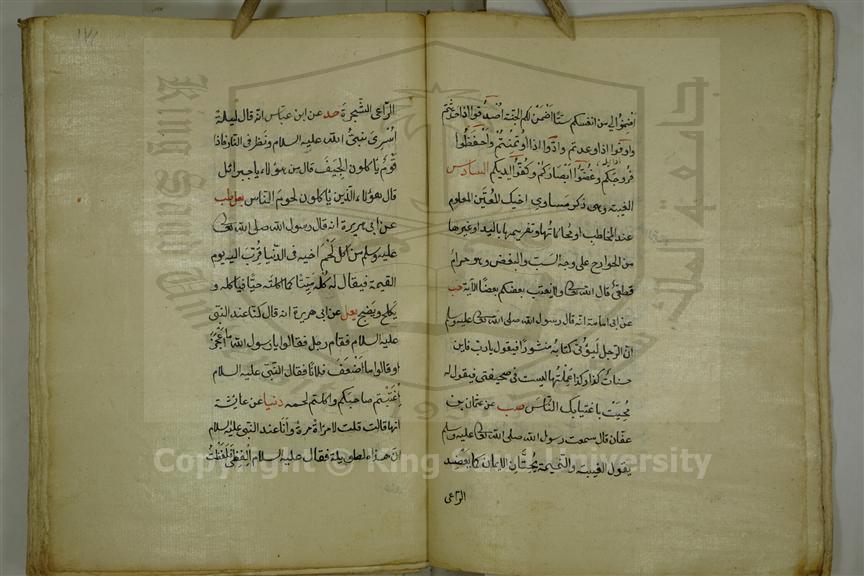 اضمنوا لي من انفسكم ستا اضمن لكم الجنة اصدقوا اذا حدثتم
واوفوا اذا وعدتم وادوا اذا اؤتمنتم واحفظوا
فروجكم وغضوا ابصاركم وكفوا ايديكم السادس
الغيبة وهي ذكر مساوي اخيك المعين المعلوم
عند المخاطب او محاكاتها وتفهيمها باليد او غيرها
من الجوارح على وجه السب والبغض وهو حرام
قطعي قال الله تعالى ولا يغتب بعضكم بعضا الآية حب
عن ابي امامة انه قال رسول الله صلى الله تعالى عليه وسلم
ان الرجل ليؤتى كتابه منشورا فيقول يا رب فاين
حسنات كذا وكذا عملتها ليست في صحيفتي فيقول له
محيت باغتيابك الناس صب عن عثمان بن
عفان قال سمعت رسول الله صلى الله تعالى عليه وسلم
يقول الغيبة والنميمة يحتان الايمان كما يعضد
الراعي
١٧٤
الراعي الشجرة حد عن ابن عباس انه قال ليلة
اسرى نبي الله عليه السلام ونظر في النار فاذا
قوم ياكلون الجيف قال من هؤلاء يا جبرائل
قال هؤلاء الذين ياكلون لحوم الناس يعلى طب
عن ابي هريرة انه قال رسول الله صلى الله تعالى
عليه وسلم من اكل لحم اخيه في الدنيا قرب اليه يوم
القيمة فيقال له كله ميتا كما اكلته حيا فياكله و
يكلح ويضج يعلى عن ابي هريرة انه قال كنا عند النبي
عليه السلام فقام رجل فقالوا يا رسول الله ما اعجز
او قالوا ما اضعف فلانا فقال النبي عليه السلام
اغتبتم صاحبكم واكلتم لحمه دنيا عن عايشة
انها قالت قلت لامراة مرة وانا عند النبي عليه السلام
ان هذه لطويلة فقال عليه السلام الفظي فلفظت
Copyright © King Saud University
King Saud University
جامعة الملك سعود